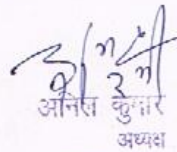 अनिल कुमार
अध्यक्ष